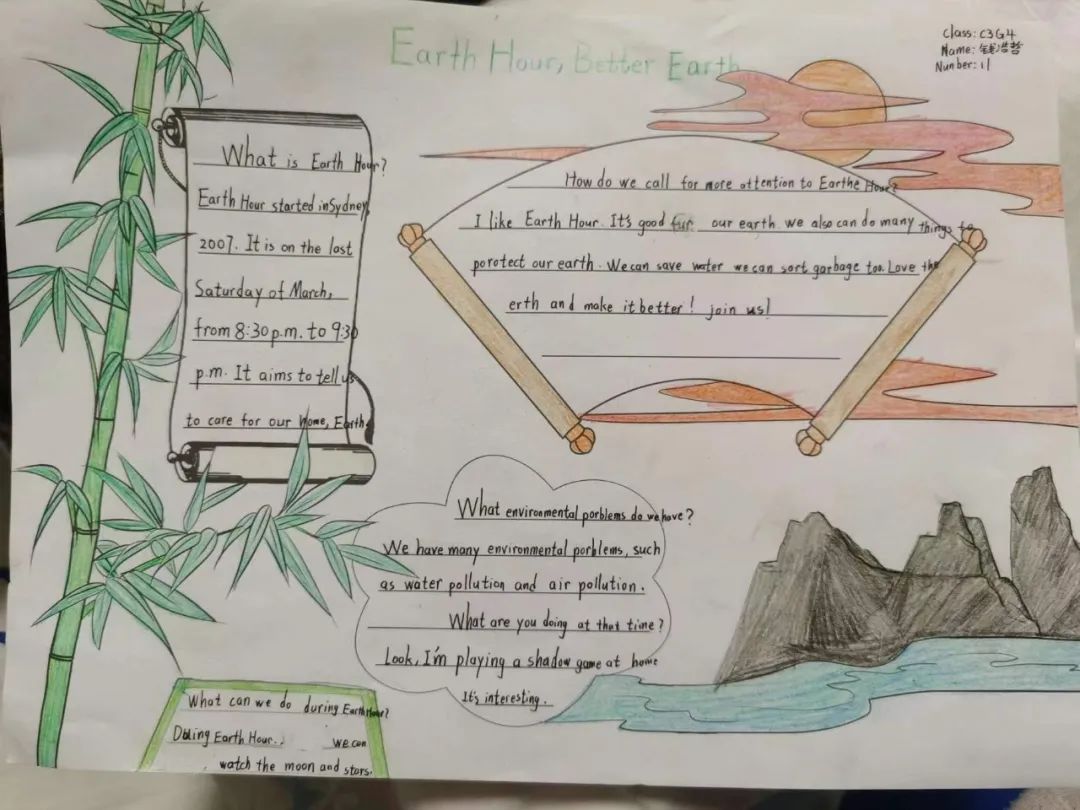 Earth Hour, Better Earth
Class: C3G4
Name: 钱浩哲
Nunber: 11
What is Earth Hour?
Earth Hour started in Sydney,
2007. It is on the last
Saturday of March,
from 8:30 p.m. to 9:30
p.m. It aims to tell us
to care for our home, Earth.
How do we call for more attention to Earthe Hour?
I like Earth Hour. It's good fur our earth. we also can do many things to
porotect our earth. We can save water we can sort garbage too. Love the
erth and make it better! join us!
What environmental porblems do we have?
We have many environmental porblems, such
as water pollution and air pollution.
What are you doing at that time?
Look, I'm playing a shadow game at home
It's interesting.
What can we do during Earth Hour?
Earth Hour.. we can
watch the moon and stars.